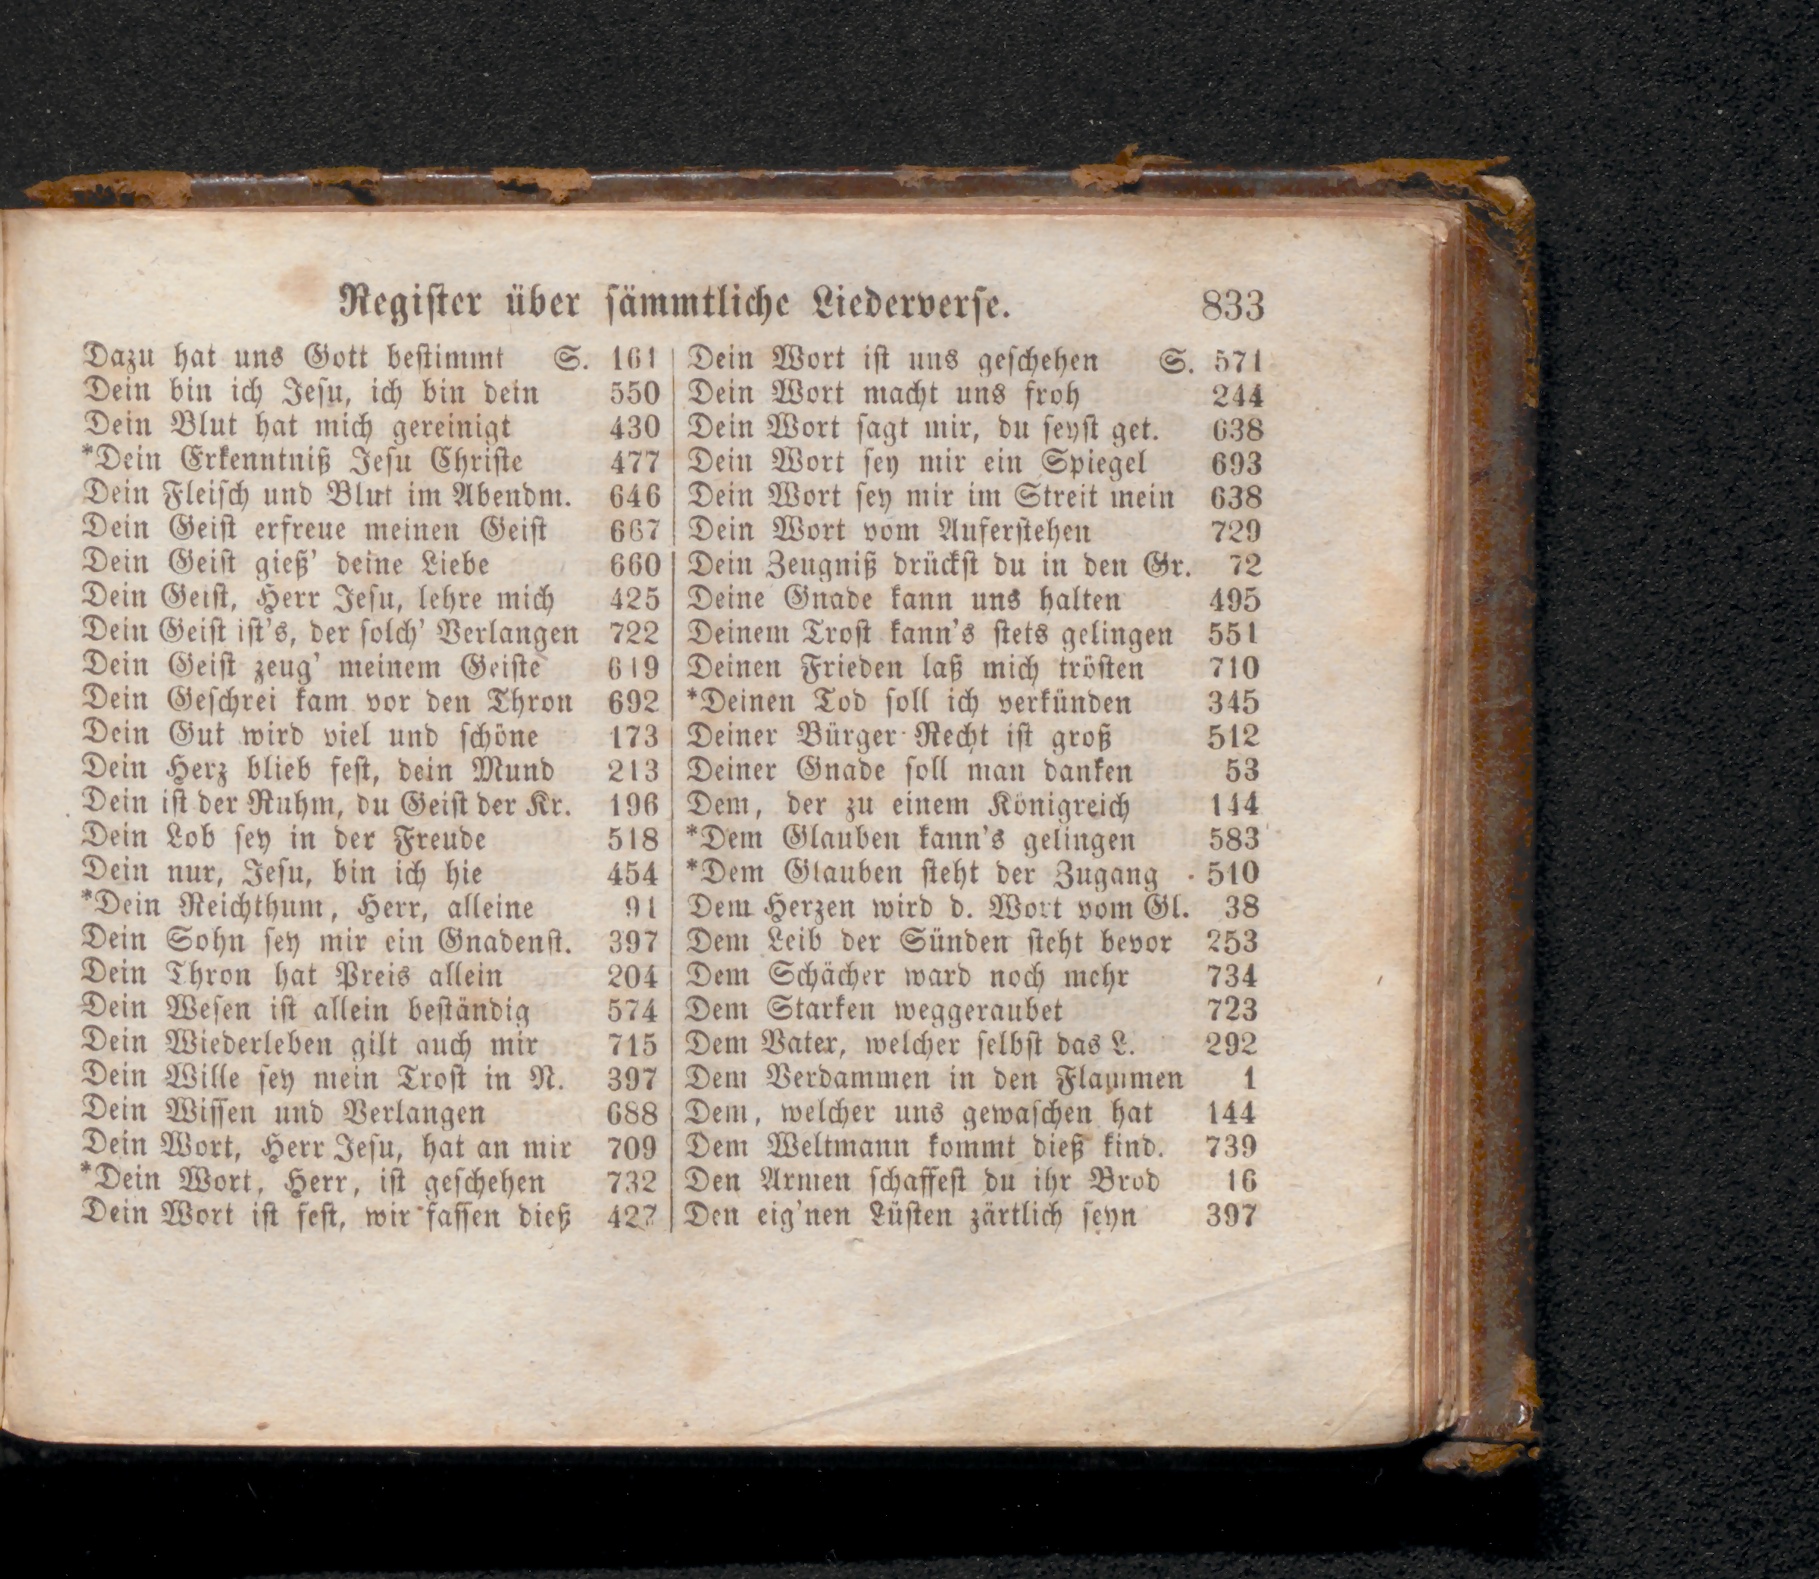 Register über sämmtliche Liederverse. 833
Dazu hat uns Gott bestimmt S. 161
Dein bin ich Jesu, ich bin dein 550
Dein Blut hat mich gereinigt 430
*Dein Erkenntniß Jesu Christe 477
Dein Fleisch und Blut im Abendm. 646
Dein Geist erfreue meinen Geist 667
Dein Geist gieß' deine Liebe 660
Dein Geist, Herr Jesu, lehre mich 425
Dein Geist ist's, der solch' Verlangen 722
Dein Geist zeug' meinem Geiste 619
Dein Geschrei kam vor den Thron 692
Dein Gut wird viel und schöne 173
Dein Herz blieb fest, dein Mund 213
Dein ist der Ruhm, du Geist der Kr. 196
Dein Lob sey in der Freude 518
Dein nur, Jesu, bin ich hie 454
*Dein Reichthum, Herr, alleine 91
Dein Sohn sey mir ein Gnadenst. 397
Dein Thron hat Preis allein 204
Dein Wesen ist allein beständig 574
Dein Wiederleben gilt auch mir 715
Dein Wille sey mein Trost in N. 397
Dein Wissen und Verlangen 688
Dein Wort, Herr Jesu, hat an mir 709
*Dein Wort, Herr, ist geschehen 732
Dein Wort ist fest, wir fassen dieß 427
Dein Wort ist uns geschehen S. 571
Dein Wort macht uns froh 244
Dein Wort sagt mir, du seyst get. 638
Dein Wort sey mir ein Spiegel 693
Dein Wort sey mir im Streit mein 638
Dein Wort vom Auferstehen 729
Dein Zeugniß drückst du in den Gr. 72
Deine Gnade kann uns halten 495
Deinem Trost kann's stets gelingen 551
Deinen Frieden laß mich trösten 710
*Deinen Tod soll ich verkünden 345
Deiner Bürger Recht ist groß 512
Deiner Gnade soll man danken 53
Dem, der zu einem Königreich 144
*Dem Glauben kann's gelingen 583
*Dem Glauben steht der Zugang 510
Dem Herzen wird d. Wort vom Gl. 38
Dem Leib der Sünden steht bevor 253
Dem Schächer ward noch mehr 734
Dem Starken weggeraubet 723
Dem Vater, welcher selbst das L. 292
Dem Verdammen in den Flammen 1
Dem, welcher uns gewaschen hat 144
Dem Weltmann kommt dieß kind. 739
Den Armen schaffest du ihr Brod 16
Den eig'nen Lüsten zärtlich seyn 397